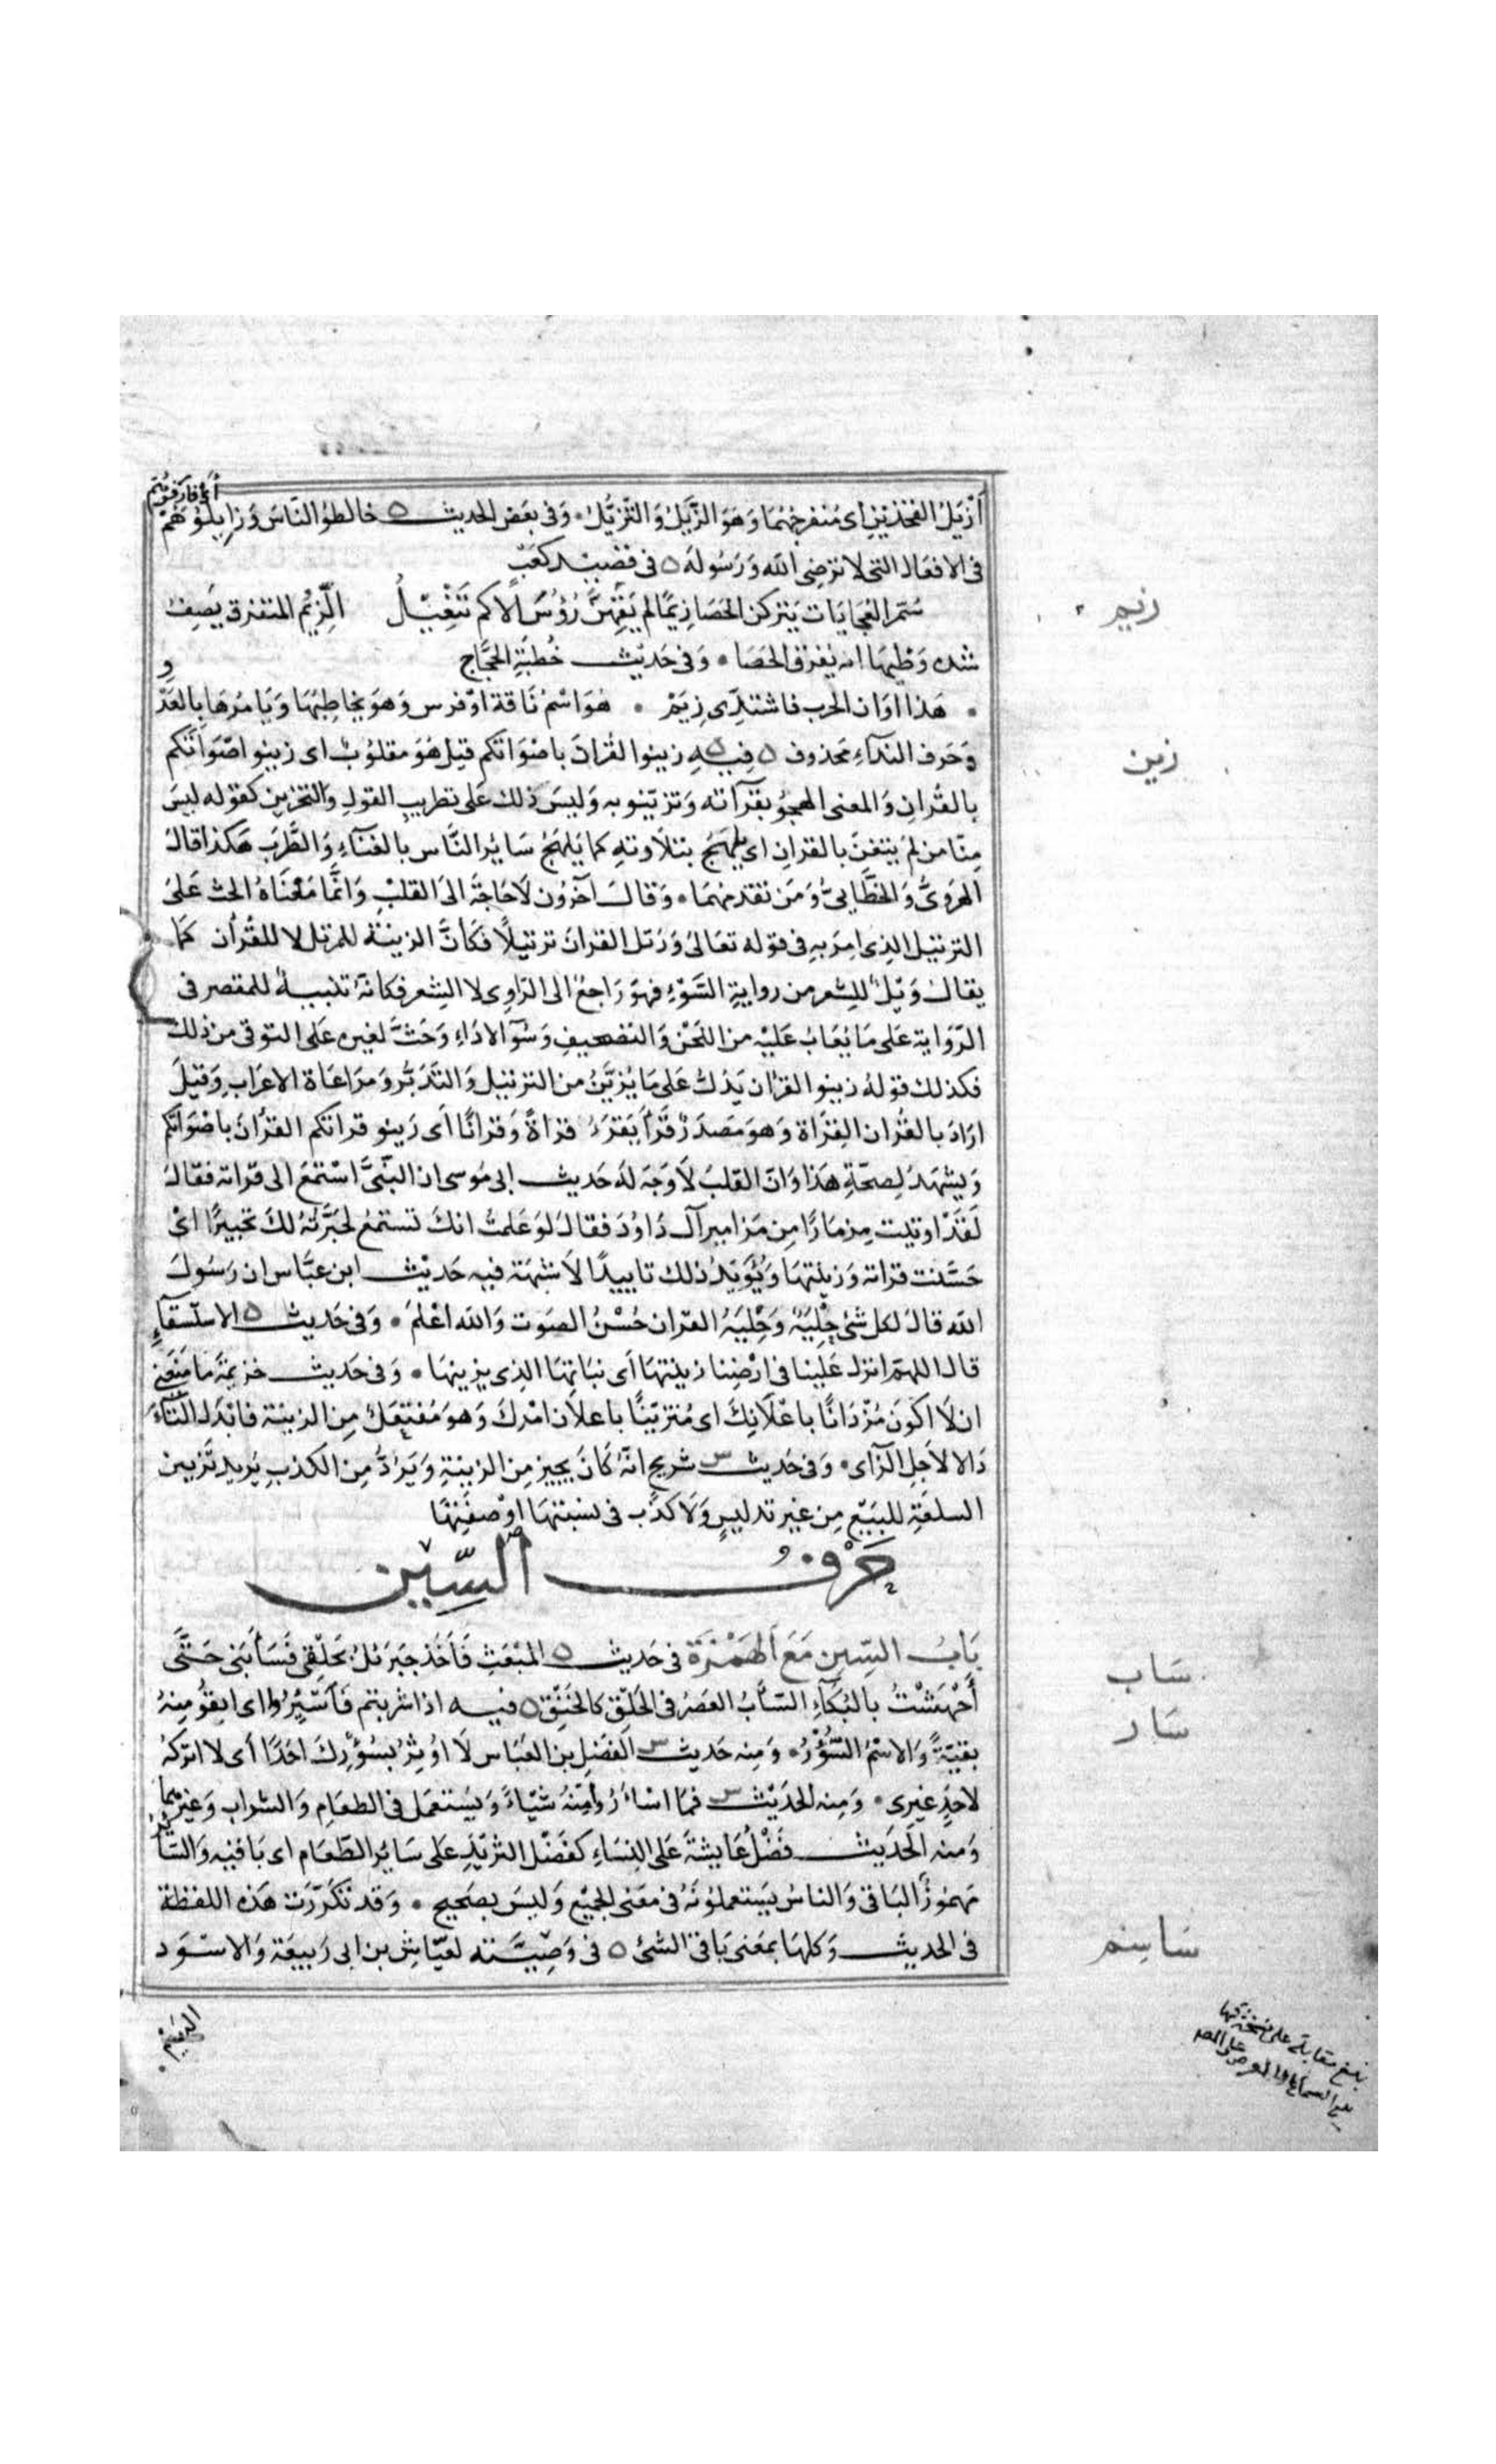 أَزْيَلُ الفخذين اى مُنفرجهُما وَهوَ الزَّيَلُ وَالتَّزيُّلُ • وَفى بعَض الحديث ٥ خالطوُا النَّاسَ وَزايِلُوُهَمْ
أى فارقوُهُم
فى الافعَال التى لا تَرضِى الله وَرَسُولَهُ ٥ فى قصَيد كعَبّ
سُمّر العُجَايَات يَتركن الحَصَا زِيَمًا لم يَقِهنَّ رُؤسَ الأكم تَنْعْيِلُ الزِّيَمُ المتفرق يَصِفُ
شده وَطْيهَا انه يُفرق الحَصَا • وَفى حَديثِ خُطبَةِ الحجَّاج
• هَذا اوَان الحرب فاشتدِّى زِيَمْ • هُوَ اسْمُ نَاقة اوْ فرس وَهوَ يخاطِبُهَا وَيَامُرُهَا بالعَدْ
و
وَحَرف الندآءِ محَذوف ٥ فِيهِ ٥ زينوا القُرانَ باصْوَاتكم قيل هُوَ مَقلوُبٌ اى زينو اصْوَاتَكم
بالقُرانِ وَالمعنى الهجوُ بقرَآته وَتزيّنو به وَليسَ ذلك عَلى تطريبِ القول وَالتحزين كقوله ليسَ
مِنّا من لم يتغنَ بالقرانِ اى يلهَجُ بتلاَوتهِ كما يَلهَجُ سَايُر النَّاس بالغنَآءِ وَالطَّرَب هَكذا قالَ
الهَروَىُّ وَالخطَّابىُّ وَمَن تقدمهُمَا • وَقالَ آخرُون لاَ حَاجَةَ الىَ القلبْ وَانَّما مَعْنَاهُ الحث عَلىَ
الترتيل الذِى امِرَ بِهِ فى قوله تعَالىَ وَرَتل القرانَ ترتيلاً فكأنَّ الزينة للمرتل لا للقُرأن كمَا
يقالُ وَيْلٌ للِشعر من روايةِ السَّوْءِ فهوَ رَاجعُ الى الرّاوِى لا الشِعر فكانَهُ تنبيهٌ للمقصر فى
الرّوَاية عَلى مَا يُعَابُ عَليْه من اللحْن وَالتَصحيفِ وَسُوٓ الادَاءِ وَحَثَّ لغيره عَلى التوقى من ذلك
فكذلك قولهُ زينو القرأن يَدُلُّ عَلى مَا يُزيَّنُ من الترتيل وَالتَّدَبُّر وَمرَاعَاة الاعرَابِ وَقيلَ
ارَادَ بالقُران القِرَاة وَهوَ مَصَدرُ قَرَأ يَقرَءُ قراةً وَقرانًا اَى زَينو قراتكم القرُأنَ باصْوَاتكم
وَيشهَدُ لِصحّةِ هَذا وَانّ القلبَ لاَ وَجَهَ لَهُ حَديث ابى مُوسى ان النَبّىَّ اسْتمَعَ الى قرَاته فقالَ
لَقَدْ اوتيت مِزمَارًا مِن مَزامير آل دَاوُدَ فقالَ لوَ عَلمتُ انكَ تستمعُ لحَبَّرتُهُ لكَ تحبيرًا اىْ
حَسّنت قراته وَزينتهَا وَيُؤَيدُ ذلك تاييدًا لاَ شبهَةَ فيه حَديْث ابن عبَّاس ان رَسُولَ
الله قالَ لكل شئ حِليَةٌ وَحِليَةُ القرَان حُسْنُ الصَوت وَالله اعْلمَ • وَفى حَديث ٥ الاستسقآءِ
قال اللهمّ انزل عَلينا فى ارْضِنا زينتهَا اَى نباتهَا الذِى يزينهَا • وَفى حَديث خزيمَة مَا مَنعَنى
ان لاَ اكوَن مُزْدَانًا باعْلاَنِكَ اى مُتزيّنًا باعلاَن امْرك وَهوَ مُفتعَلٌ مِن الزينة فابدَل التآءَ
دَالا لاَجلِ الزَّاى • وَفى حَديث شريح انّهُ كانَ يجيز مِن الزينةِ وَيَرُدُّ مِن الكذب يُريد تَزيين
السلعَةِ للبَيْع مِن غير تدليسٍ وَلاَ كذَّب فى نسبتهَا اوْ صفَتِهَا
حَرْفُ السِّيْن
بَابُ السّين مَعَ الهَمْزَة فى حَديث ٥ المبْعَثِ فَاَخَذ جبَرئلُ بحَلْقى فَسَأبَنى حَتَّى
أَجْهَشْتُ بالبُكَآءِ السَّأبُ العَصْرُ فى الحَلْق كالخنِق ٥ فيه اذا شربتم فَأَسْئِرُوا اى ابقوُ مِنهُ
بقيّةً وَالاسْمُ السُّؤرُ • وَمنِه حَديث الفَضْلِ بن العَبَاس لاَ اوُثِرُ بسُؤْرِكَ احَدًا أى لا اتركهُ
لاحَدٍ غيرِى • وَمِنه الحَديْث فمَا اسْاءَرُوا مِنْهُ شيْاءً وَيَستعمَل فى الطعَامِ وَالشراب وَغيرهِمَا
وَمنه الحَديث فَضْلُ عَايشَةَ عَلى النِسَاءِ كفَضْل الثريْدِ عَلى سَائِر الطّعَام اى بَاقيْه وَالسَّائرُ
مَهمُوزٌ البَاقى وَالناسُ يَستعملوُنَهُ فى مَعَنى الجميْع وَليسَ بصَحيح • وَقد تَكرَّرَت هَذه اللفظة
فى الحديث وَكلهَا بمَعنى بَاقى الشئ ٥ فى وَصِيَّته لعيّاش بن ابى رَبيعَة وَالاسْوَد
زيم
زين
سَاب
سَار
سَاسِم
بلغ مقابلة على نسخة